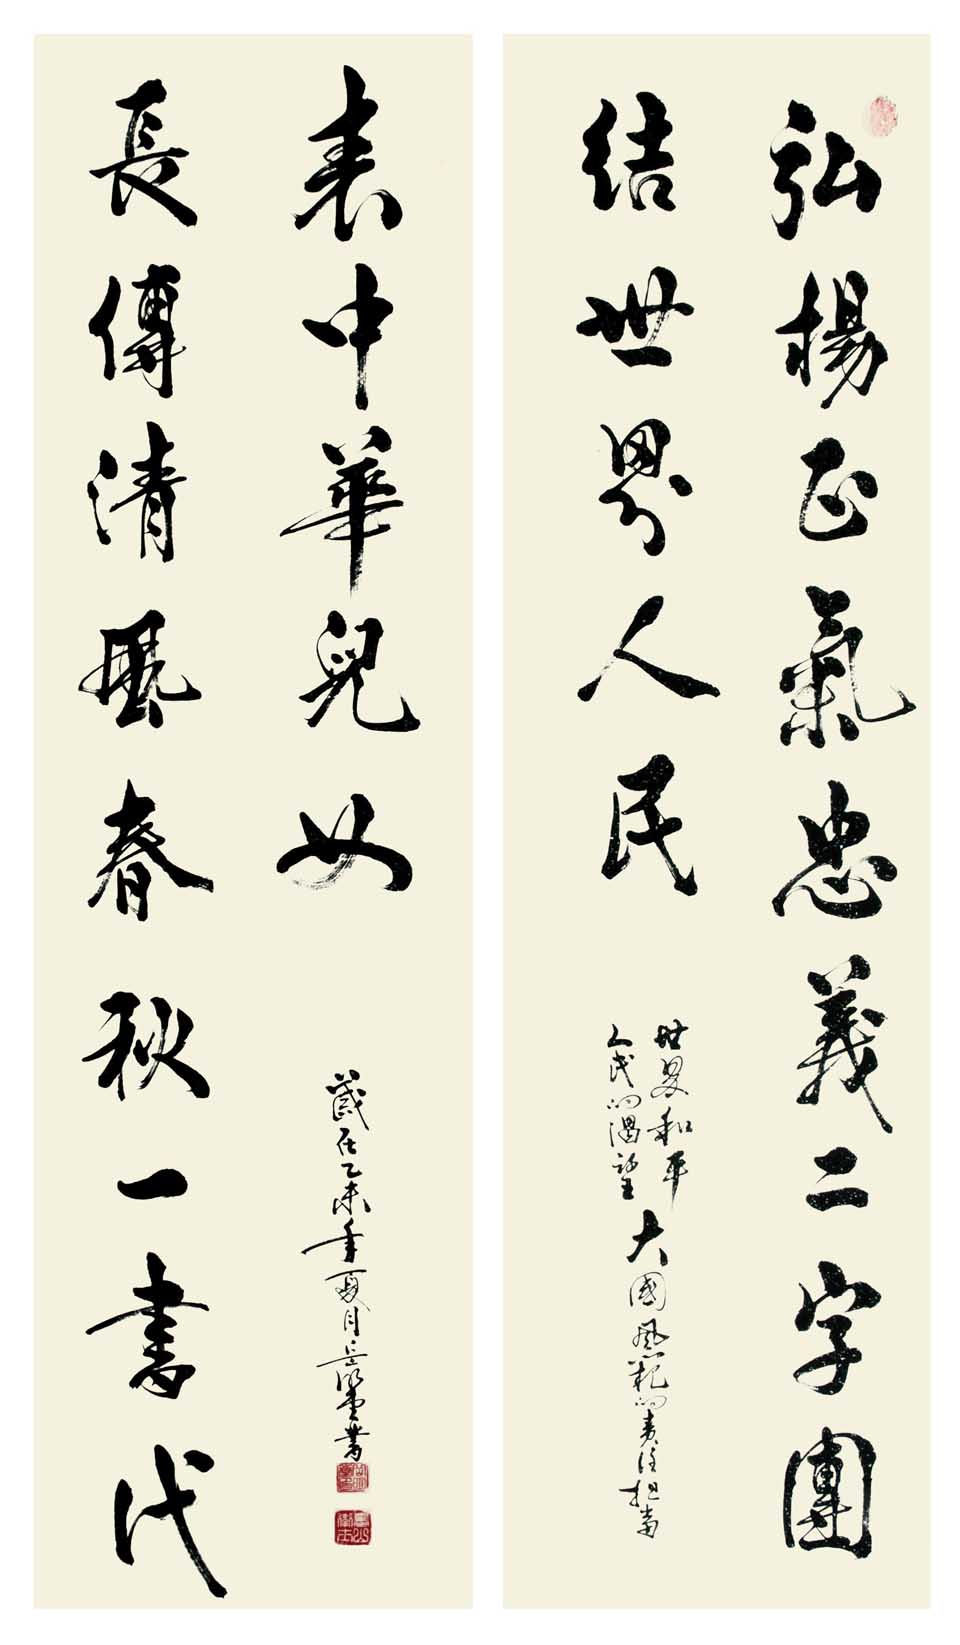 弘揚正氣忠義二字團
結世界人民
世界和平
人民的渴望
大國風範的責任担當
長傳清風春秋一書代
表中華兒女
歲在乙未年夏月岳書